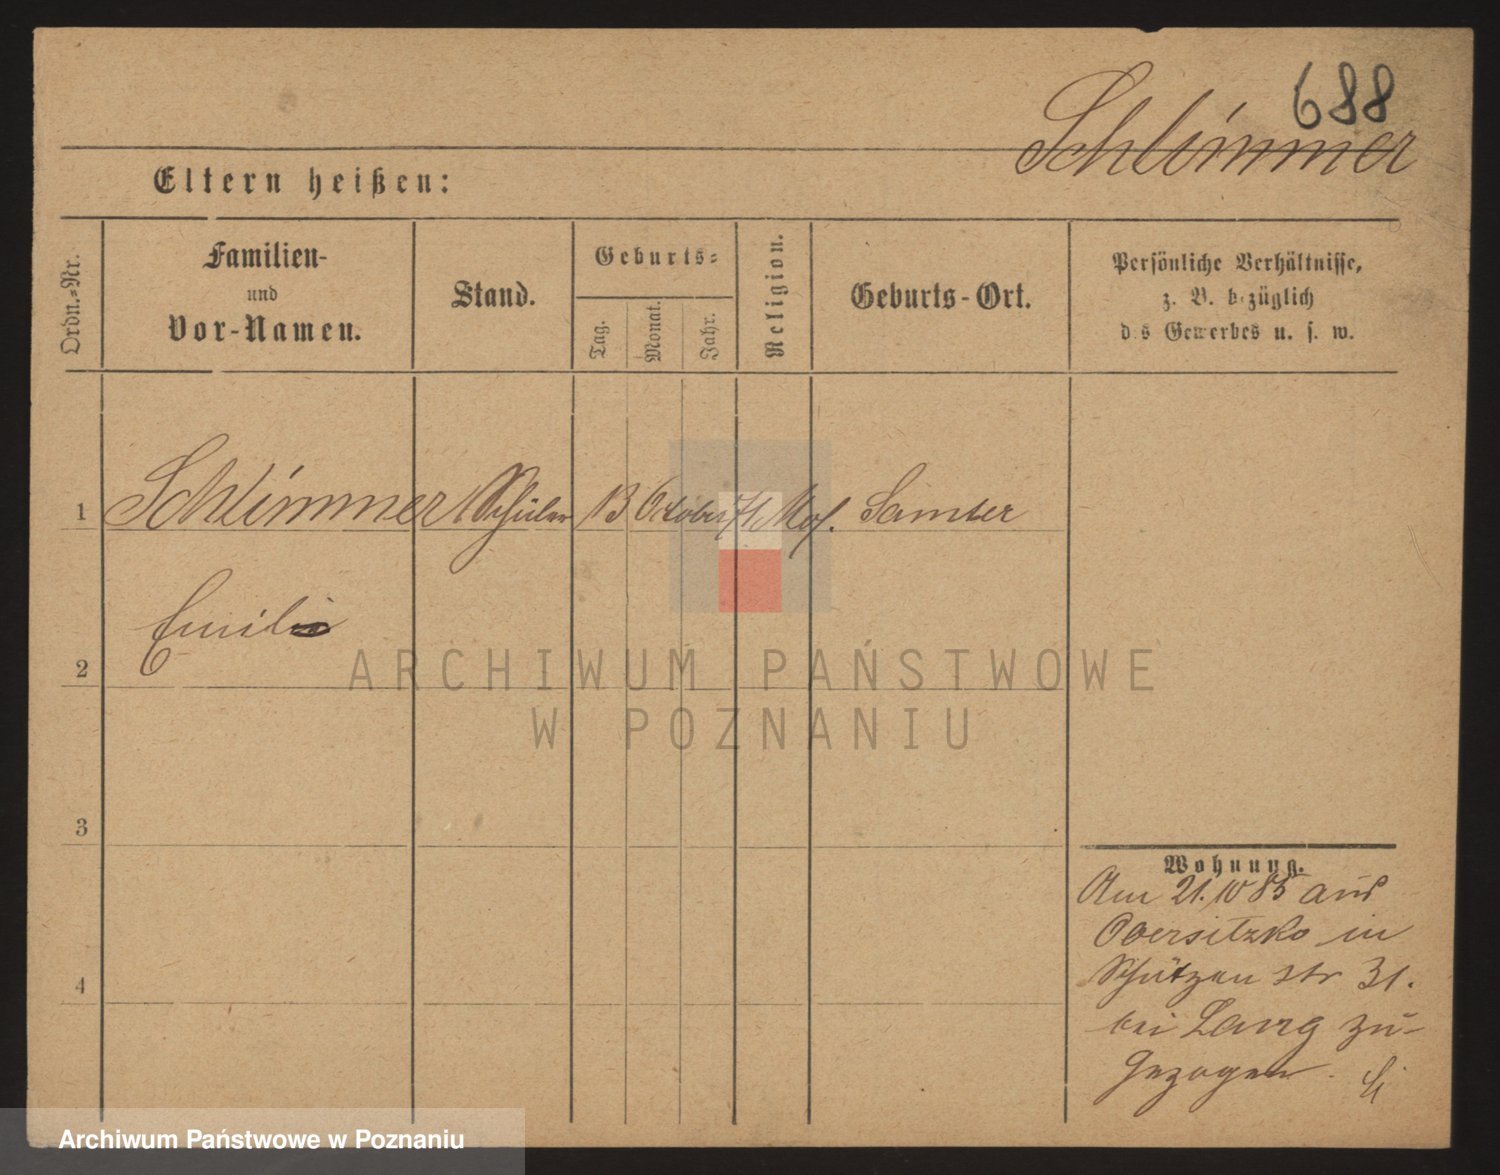 688
Schlimmer
Eltern heißen:
Ordn.-Nr.
Familien-
und
Vor-Namen.
Stand.
Geburts-
Tag.
Monat.
Jahr.
Religion.
Geburts-Ort.
Persönliche Verhältnisse,
z. B. bezüglich
d s Gewerbes u. s. w.
1 Schlimmer Schüler 13 October 71 Mos. Samter
Emil
2
3
4
Wohnung.
Am 21.10 85 aus
Obersitzko in
Schützen str 31.
bei Lang zu-
gezogen.
ARCHIWUM PAŃSTWOWE
W POZNANIU
Archiwum Państwowe w Poznaniu